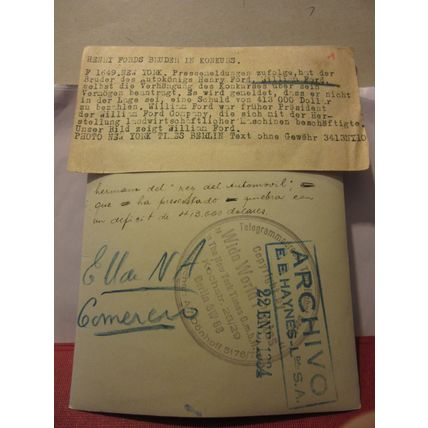 HENRY FORDS BRUDER IN KONKURS.
F 1649. NEW YORK. Pressemeldungen zufolge, hat der
Bruder des Autokönigs Henry Ford, William Ford,
selbst die Verhängung des Konkurses über sein
Vermögen beantragt. Es wird gemeldet, dass er nicht
in der Lage sei, eine Schuld von 413 000 Dollar
zu bezahlen. William Ford war früher Präsident
der William Ford Company, die sich mit der Her-
stellung landwirtschaftlicher Maschinen beschäftigte.
Unser Bild zeigt William Ford.
PHOTO NEW YORK TIMES BERLIN Text ohne Gewähr 3413NY10
hermano del "rey del automovil";
que ha presentado quiebra con
un deficit de 413.000 dolares.
Telegramm
Copyright
"Wide World
The New York Times G.m.b.H.
Kochstr. 28/29
Berlin SW 68
A7 Dönhoff
ARCHIVO
E. E. HAYNES-L S. A.
22 ENE. 1934
E U de NA
Comercio